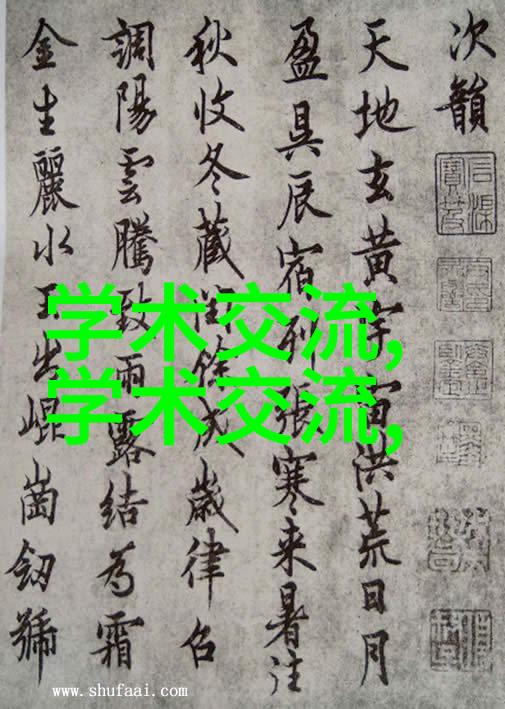 次韻
天地玄黄宇宙洪荒日月
盈昃辰宿列張寒来暑往
秋收冬藏閏餘成歲律召
調陽雲騰致雨露結為霜
金生麗水玉出崐崗劒號
学术交流,
学术交流,
www.shufaai.com